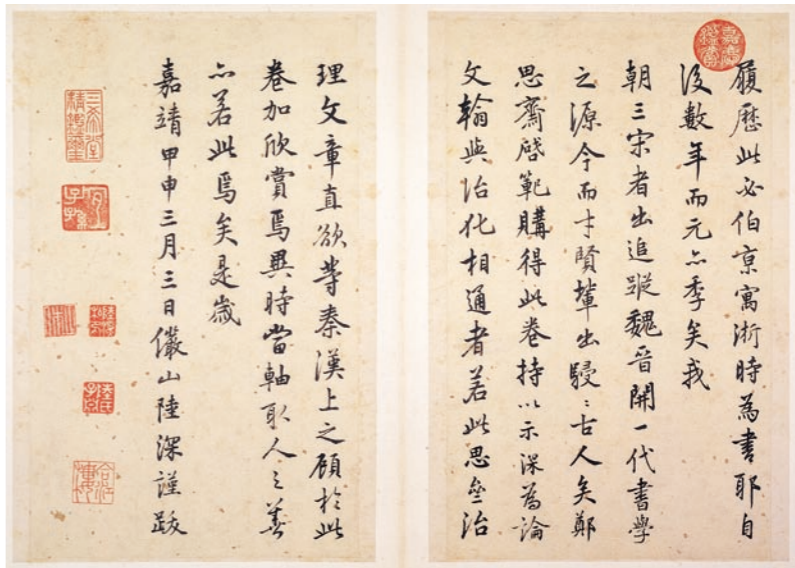 嘉慶鑑賞
履歷此必伯亰寓浙時為書耶自
後數年而元亦季矣我
朝三宋者出追蹤魏晉開一代書學
之源今而才賢輩出駸〻古人矣鄭
思齋啓範購得此卷持以示深為論
文翰與治化相通者若此思亝治
理文章直欲等秦漢上之顧於此
卷加欣賞焉異時當軸取人之善
亦若此焉矣是歲
嘉靖甲申三月三日儼山陸深謹跋
三希堂精鑑璽
宜子孫